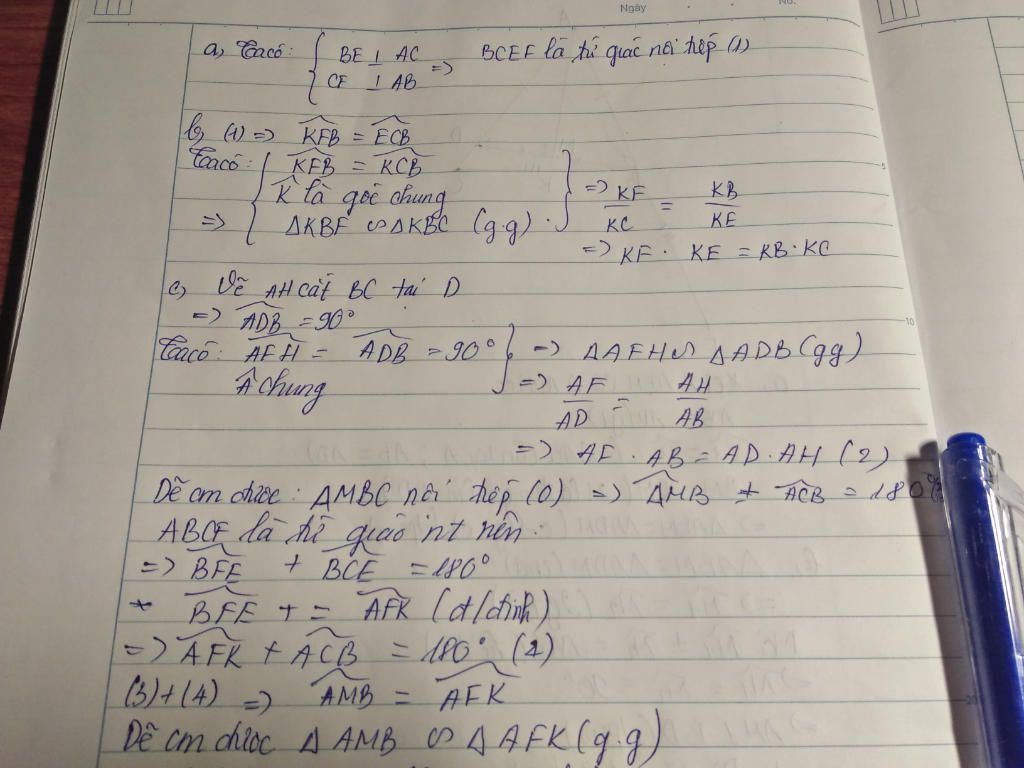 Ngày
No.
a, Ta có: { BE ⊥ AC
CF ⊥ AB => BCEF là tứ giác nội tiếp (1)
b, (1) => KFB = ECB
Ta có: { KFB = KCB
K là góc chung
=> ΔKBF ∽ ΔKBC (g.g). } => KF/KC = KB/KE
=> KF . KE = KB . KC
c, Vẽ AH cắt BC tại D
=> ADB = 90°
Ta có: AFH = ADB = 90° } => ΔAFH ∽ ΔADB (gg)
 chung => AF/AD = AH/AB
=> AF . AB = AD . AH (2)
Dễ cm được: AMBC nội tiếp (O) => AMB + ACB = 180°
ABCF là tứ giác nt nên.
=> BFE + BCE = 180°
+ BFE + = AFK (đ/đỉnh)
=> AFK + ACB = 180° (4)
(3)+(4) => AMB = AFK
Dễ cm được Δ AMB ∽ Δ AFK (g.g)
5
10
20